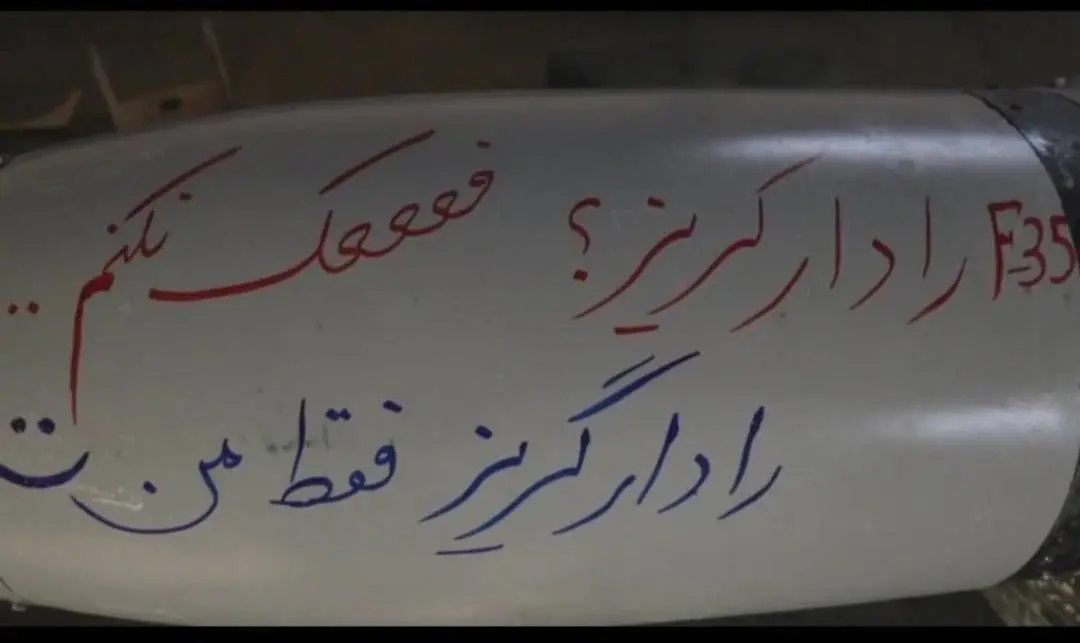 F-35 رادارگریز؟ فععععک نکنم..
رادارگریز فقط من